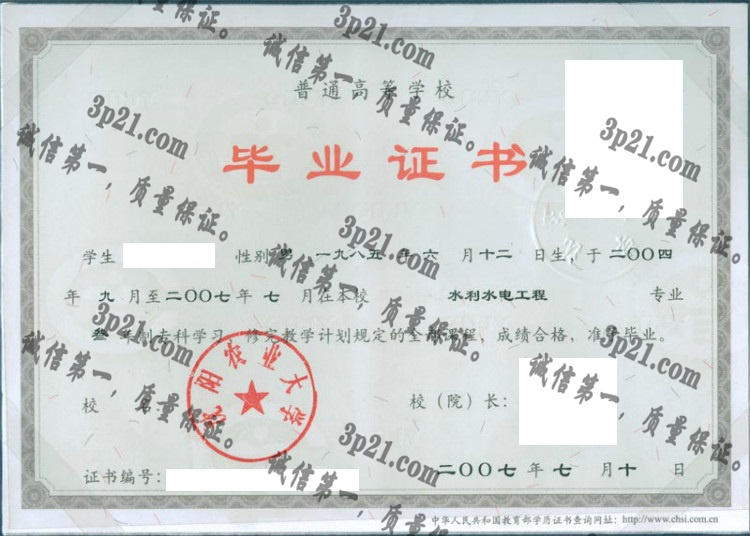 3p21.com
诚信第一，质量保证。
普通高等学校
毕业证书
学生 性别 男 一九八五 年 六 月 十二 日生，于 二〇〇四
年 九 月至 二〇〇七 年 七 月在本校 水利水电工程 专业
叁 年制专科学习，修完教学计划规定的全部课程，成绩合格，准予毕业。
沈阳农业大学
校 名： 校（院）长：
证书编号： 二〇〇七 年 七 月 十 日
中华人民共和国教育部学历证书查询网址：http://www.chsi.com.cn
3p21.com
诚信第一，质量保证。
3p21.com
诚信第一，质量保证。
3p21.com
诚信第一，质量保证。
3p21.com
诚信第一，质量保证。
3p21.com
诚信第一，质量保证。
3p21.com
诚信第一，质量保证。